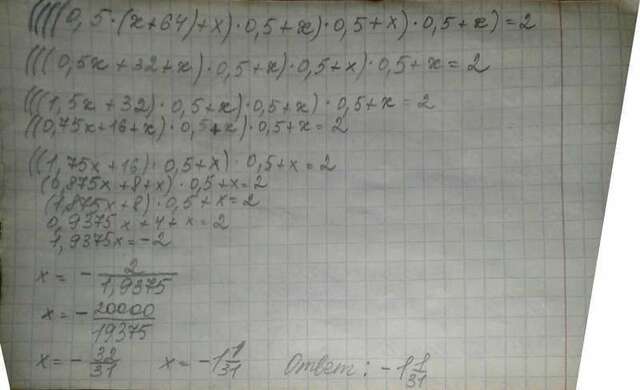 (((((0,5·(x+64)+x)·0,5+x)·0,5+x)·0,5+x)=2
(((0,5x+32+x)·0,5+x)·0,5+x)·0,5+x=2
(((1,5x+32)·0,5+x)·0,5+x)·0,5+x=2
((0,75x+16+x)·0,5+x)·0,5+x=2
((1,75x+16)·0,5+x)·0,5+x=2
(0,875x+8+x)·0,5+x=2
(1,875x+8)·0,5+x=2
0,9375x+4+x=2
1,9375x=-2
x= - 2/1,9375
x= - 20000/19375
x= - 32/31 x= -1 1/31 Ответ: -1 1/31